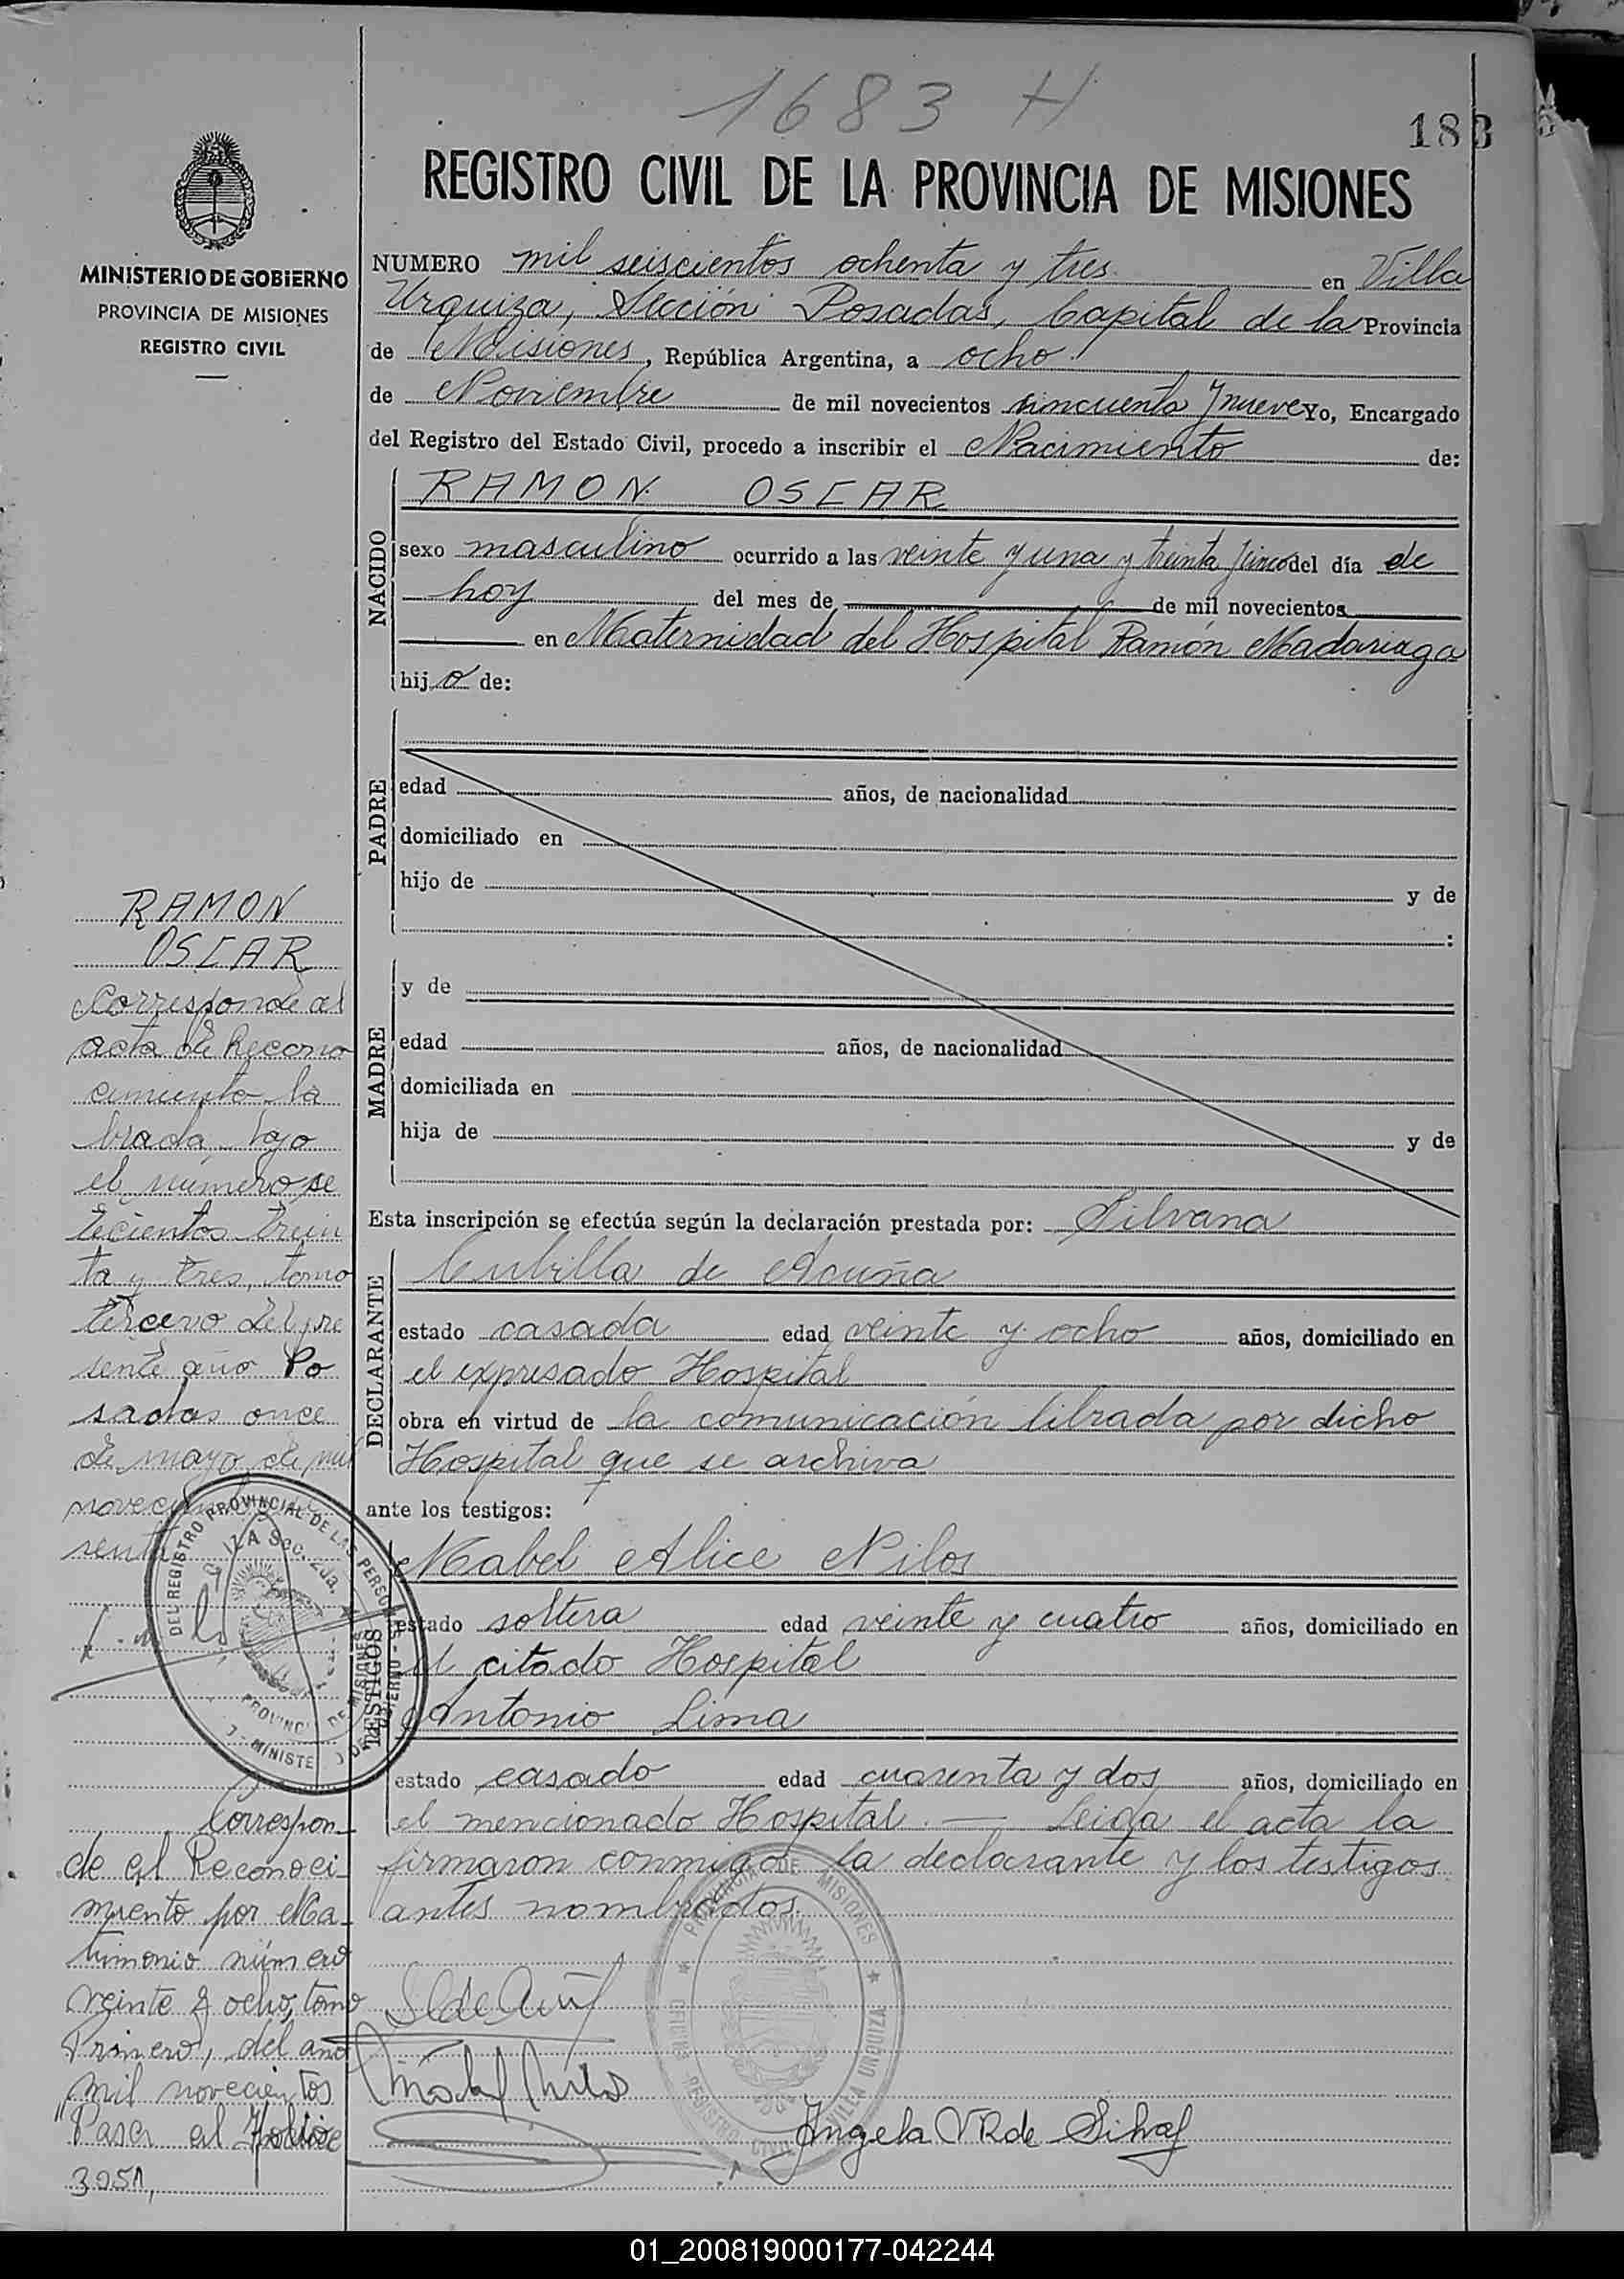 1683 H
183
REGISTRO CIVIL DE LA PROVINCIA DE MISIONES
MINISTERIO DE GOBIERNO
PROVINCIA DE MISIONES
REGISTRO CIVIL
NUMERO mil seiscientos ochenta y tres en Villa
Urquiza, Sección Posadas, Capital de la Provincia
de Misiones, República Argentina, a ocho
de Noviembre de mil novecientos cincuenta y nueve Yo, Encargado
del Registro del Estado Civil, procedo a inscribir el Nacimiento de:
NACIDO
RAMON OSCAR
sexo masculino ocurrido a las veinte y una y treinta y cinco del día de
hoy del mes de de mil novecientos
en Maternidad del Hospital Ramón Madariaga
hijo de:
PADRE
edad años, de nacionalidad
domiciliado en
hijo de y de
:
MADRE
y de
edad años, de nacionalidad
domiciliada en
hija de y de
Esta inscripción se efectúa según la declaración prestada por: Silvana
DECLARANTE
Cubilla de Acuña
estado casada edad veinte y ocho años, domiciliado en
el expresado Hospital
obra en virtud de la comunicación librada por dicho
Hospital que se archiva
ante los testigos:
TESTIGOS
Mabel Alice Nilos
estado soltera edad veinte y cuatro años, domiciliado en
el citado Hospital
Antonio Lima
estado casado edad cuarenta y dos años, domiciliado en
el mencionado Hospital. — Leida el acta la
firmaron conmigo la declarante y los testigos
antes nombrados.
S C de Acuñ
Mabel Nilos
Angela V R de Silva
PROVINCIA DE MISIONES
OFICINA REGISTRO CIVIL VILLA URQUIZA
RAMON
OSCAR
Corresponde al
acta de Recono
cimiento la
brada bajo
el número se
tecientos trein
ta y tres, tomo
tercero del pre
sente año Po
sadas once
de mayo de mil
novecientos se
senta
DEL REGISTRO PROVINCIAL DE LAS PERSO
IZA Sec. 2da.
PROVINC DE MISIONES
MINISTE DE GOBIERNO
Correspon-
de al Reconoci-
miento por Ma-
trimonio número
veinte y ocho, tomo
Primero, del año
mil novecientos
"Pasa al Folio
3051,
01_200819000177-042244